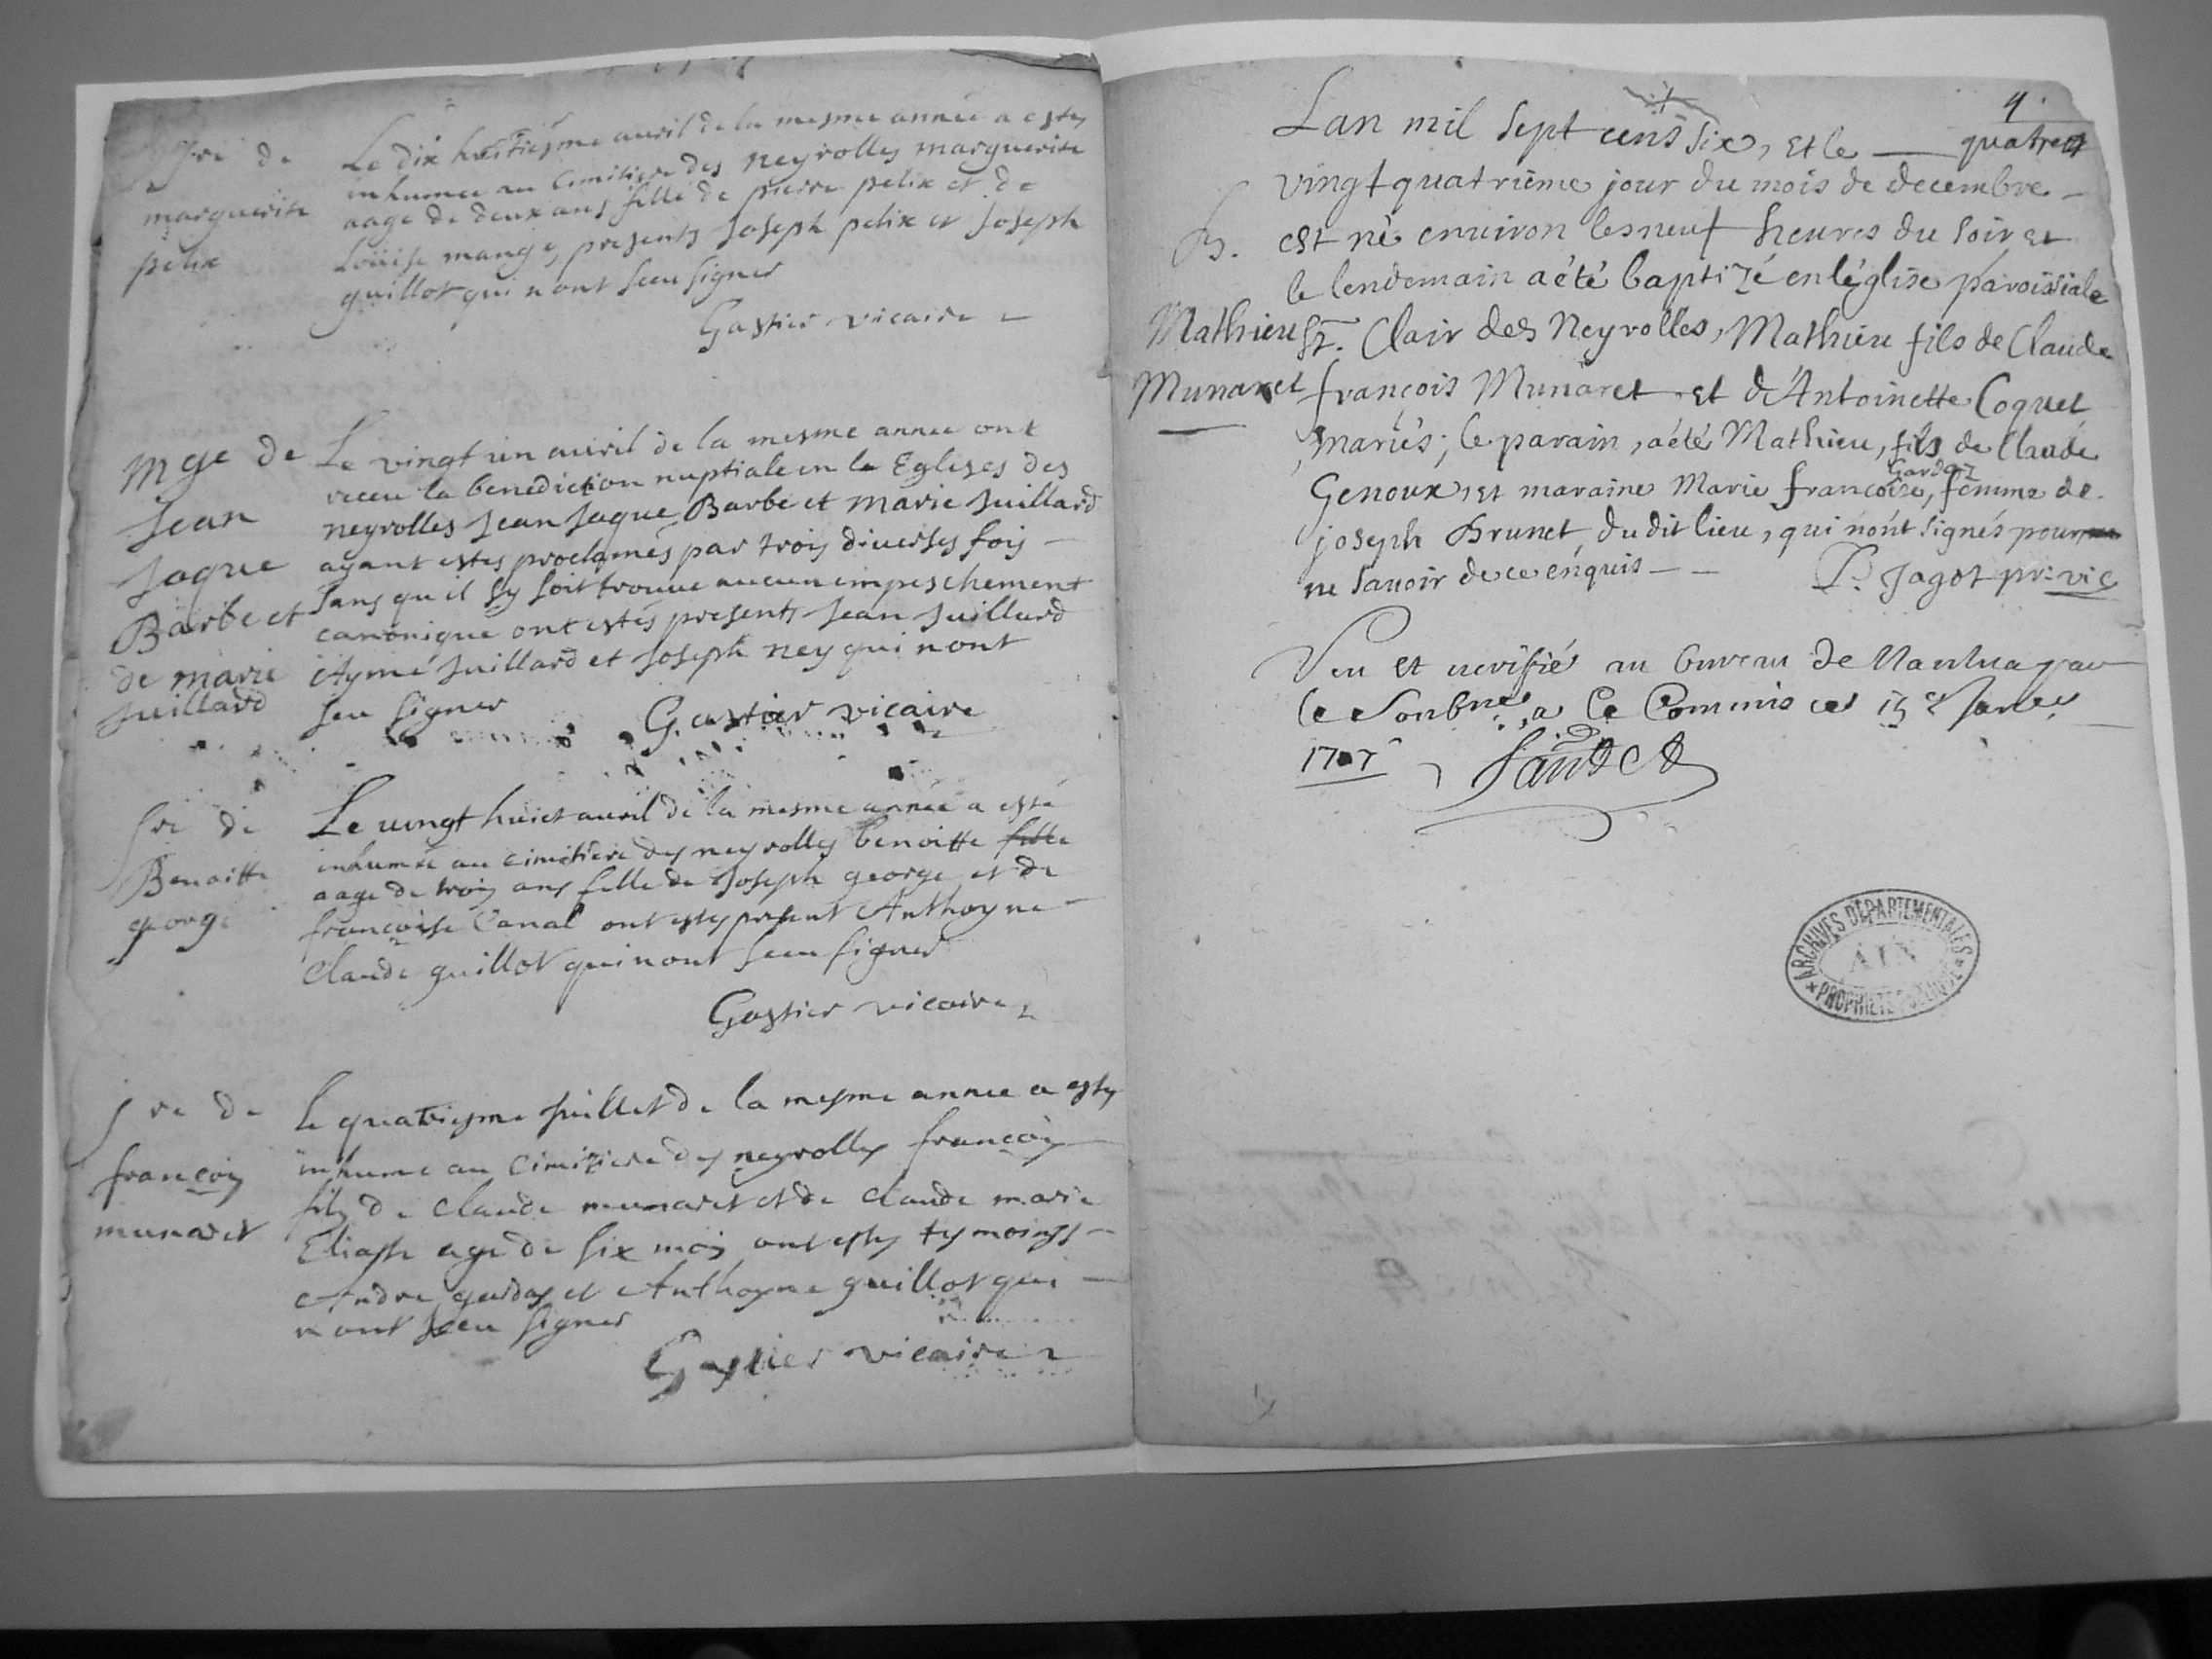 sre de
marguerite
pelix
Le dix huitiesme auril de la mesme année a estes
inhumee au Cimitiere des neyrolles marguerite
aage de deux ans fille de pierre pelix et de
Louise mange, presents Joseph pelix et Joseph
guillot qui n ont sceu signer
Gastier vicaire
Mge de
Jean
Jaque
Barbe et
de marie
juillard
Le vingt un auril de la mesme annee ont
receu la benediction nuptiale en le Eglises des
neyrolles Jean Jaque Barbe et marie juillard
ayant estes proclamés par trois diverses fois
sans qu il sy soit trouue aucun empeschement
canonique ont estés presents Jean juillard
Aymé juillard et Joseph ney qui n ont
seu signer
Gastier vicaire
sre de
Benoitte
george
Le uingt huict auril de la mesme année a esté
inhumée au cimitiere des neyrolles benoitte fille
aage de trois ans fille de Joseph george et de
francoise Canal ont estes present Anthoyne
Claude guillot qui n ont sceu signer
Gastier vicaire
sre de
francois
munaret
le quatriesme juillet de la mesme annee a estes
inhume au Cimitiere des neyrolles francois
fils de Claude munaret et de Claude marie
Eliaste age de six mois ont estes tesmoings
Andre gardas et Anthoyne guillot qui
n ont sceu signer
Gastier vicaire
4.
quatre
Lan mil sept cens six, et le
vingt quatrième jour du mois de decembre
B. est né enuiron les neuf heures du soir et
le lendemain a été baptizé en léglise paroissiale
Mathieu
Munaret
St. Clair des Neyrolles, Mathieu fils de Claude
françois Munaret et d'Antoinette Coquet
mariés; le parain, a été Mathieu, fils de Claude
Gardaz
Genoux, et maraine Marie francoise, femme de
joseph Brunet, du dit lieu, qui n'ont signés pour
ne sauoir de ce enquis
P. Jagot pr: vic
Veu et verifié au bureau de Nantua par
le Soubne a ce Commis ce 15e Janer
1707
ARCHIVES DÉPARTEMENTALES
AIN
PROPRIÉTÉ PUBLIQUE